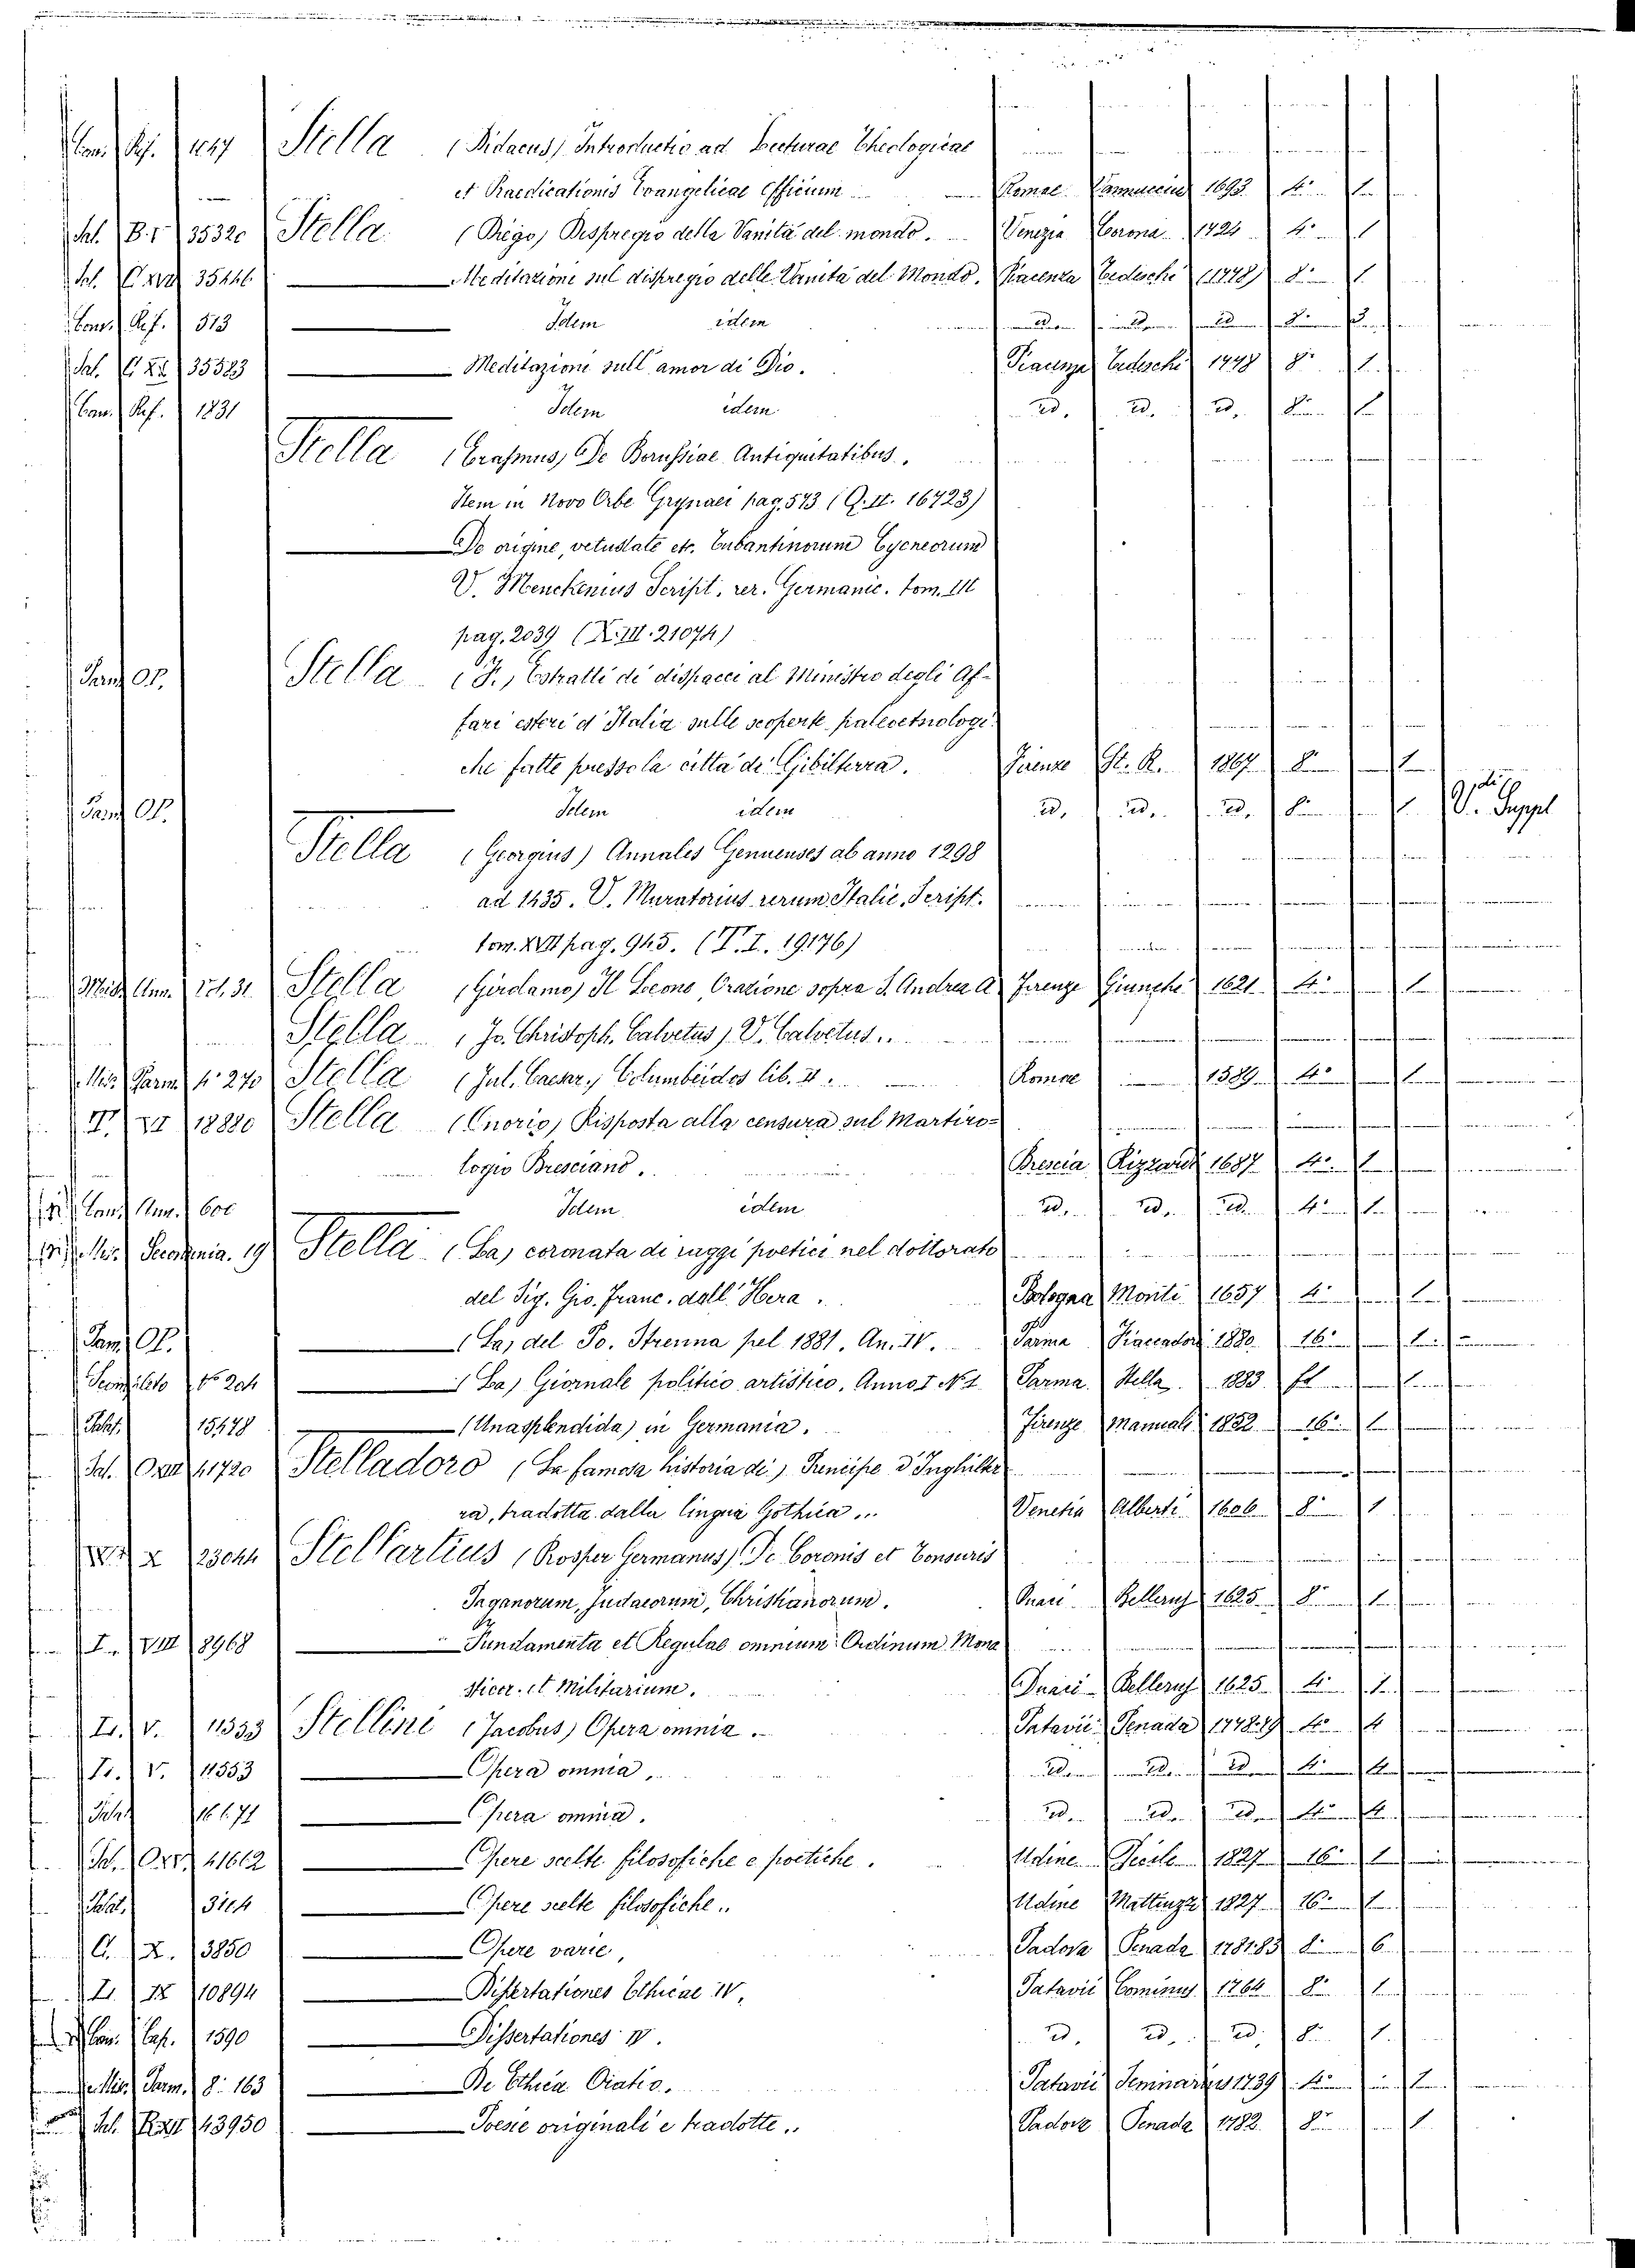 Conv. Ref. 1047 Stella (Didacus) Introductio ad Lecturae Theologicae
et Praedicationis Evangelicae Officium Romae Vannuccius 1693 4° 1
Sal. B. 35320 Stella (Diego) Dispregio della Vanità del mondo. Venezia Corona 1724 4° 1
Sal. 35446 Meditazione sul dispregio delle Vanità del Mondo. Piacenza Tedeschi (1778) 8° 1
Conv. Ref. 513 Idem idem id. id. id. 8° 3
Sal. 35583 Meditazione sull'amor di Dio. Piacenza Tedeschi 1778 8° 1
Conv. Ref. 1831 Idem idem id. id. id. 8° 1
Stella (Erasmus) De Borussiae Antiquitatibus.
Item in Novo Orbe Grynaei pag. 573 (Q. II. 16723)
De origine, vetustate etc. Eubantinorum Cycneorum
V. Menckenius Script. rer. Germanic. tom. III
pag. 2039 (X. III. 21074)
Parm. Op. Stella (F.) Estratti di dispacci al Ministro degli Af-
fari esteri d'Italia sulle scoperte paleoetnologi-
che fatte presso la città di Gibilterra. Firenze St. R. 1867 8° 1
Parm. Op. Idem idem id. id. id. 8° 1 V. Suppl
Stella (Georgius) Annales Genuenses ab anno 1298
ad 1435. V. Muratorius rerum Italic. Script.
tom. XVII pag. 945. (T. I. 19176)
Misc. Ann. 31 Stella (Girolamo) Il Leone, Orazione sopra S. Andrea A. Firenze Giunche 1621 4° 1
Stella (Jo. Christoph. Calvetus) V. Calvetus.
Misc. Parm. 4° 270 Stella (Jul. Caesar.) Columbeidos lib. II. Romae 1589 4° 1
T. VI 18880 Stella (Onorio) Risposta alla censura sul Martiro-
logio Bresciano. Brescia Rizzardi 1687 4° 1
Conv. Ann. 600 Idem idem id. id. id. 4° 1
19 Stella (La) coronata di raggi poetici nel dottorato
del Sig. Gio. Franc. dall'Hera. Bologna Monti 1657 4° 1
Parm. Op. (La) del Po. Strenna pel 1881. An. IV. Parma Fiaccadori 1880 16° 1
204 (La) Giornale politico artistico. Anno I N. 1 Parma Stella 1883 fl 1
Palat. 15478 (Una splendida) in Germania. Firenze Manuali 1852 16° 1
Sal. 41720 Stelladoro (La famosa historia di) Principe d'Inghilter-
ra, tradotta dalla lingua Gothica. Venetia Alberti 1606 8° 1
X 23044 Stellartius (Prosper Germanus) De Coronis et Tonsuris
Paganorum, Judaeorum, Christianorum. Duaci Bellerus 1625 8° 1
I. VIII 8968 Fundamenta et Regulae omnium Ordinum Mona-
sticor. et Militarium. Duaci Bellerus 1625 4° 1
V. 11533 Stellini (Jacobus) Opera omnia. Patavii Penada 1778-79 4° 4
V. 11553 Opera omnia. id. id. id. 4° 4
Palat. 16171 Opera omnia. id. id. id. 4° 4
Sal. 41662 Opere scelte filosofiche e poetiche. Udine Pecile 1827 16° 1
Palat. 3104 Opere scelte filosofiche. Udine Mattiuzzi 1827 16° 1
X. 3850 Opere varie. Padova Penada 1781-85 8° 6
IX 10894 Dissertationes Ethicae IV. Patavii Cominus 1764 8° 1
Conv. Cap. 1590 Dissertationes IV. id. id. id. 8° 1
Misc. Parm. 8° 163 De Ethica Oratio. Patavii Seminarius 1739 4° 1
Sal. 43950 Poesie originali e tradotte. Padova Penada 1782 8° 1